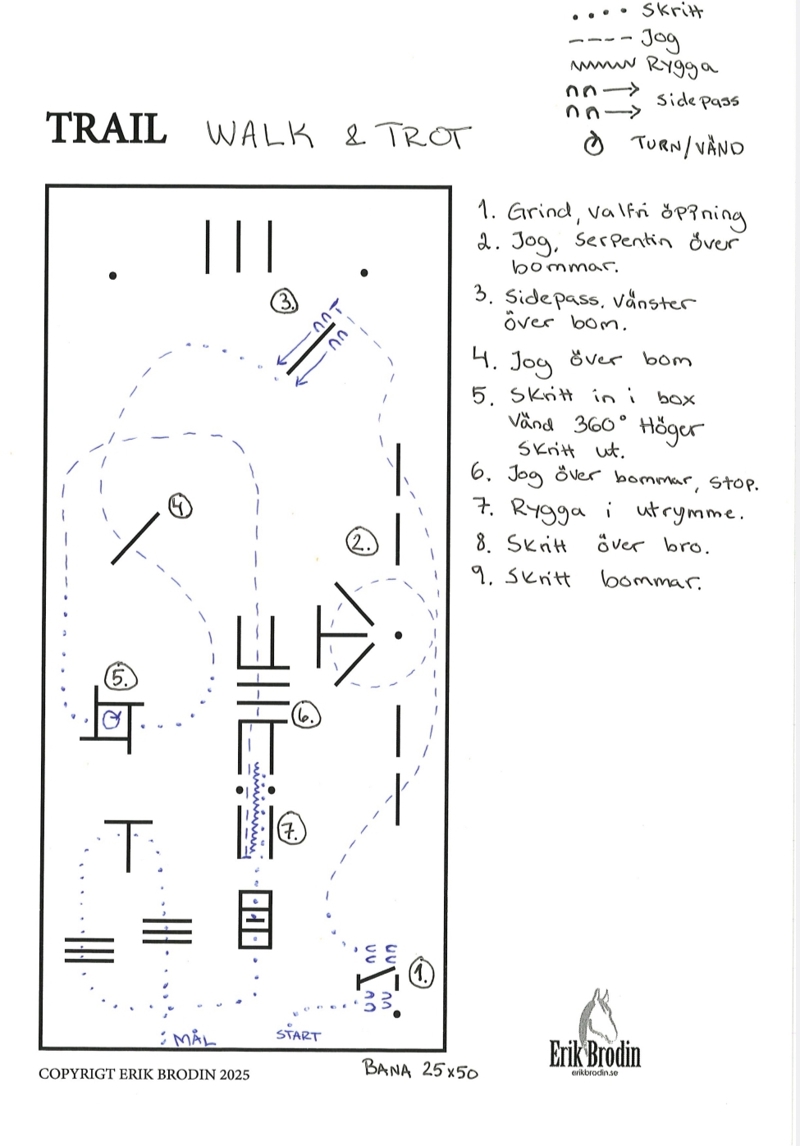 Skritt
Jog
Rygga
Sidepass
TURN/VÄND
TRAIL WALK & TROT
1. Grind, valfri öppning
2. Jog, Serpentin över
bommar.
3. Sidepass, Vänster
över bom.
4. Jog över bom
5. Skritt in i box
Vänd 360° Höger
Skritt ut.
6. Jog över bommar, stop.
7. Rygga i utrymme.
8. Skritt över bro.
9. Skritt bommar.
3.
4.
2.
5.
6.
7.
1.
MÅL
START
COPYRIGT ERIK BRODIN 2025
BANA 25x50
Erik Brodin
erikbrodin.se